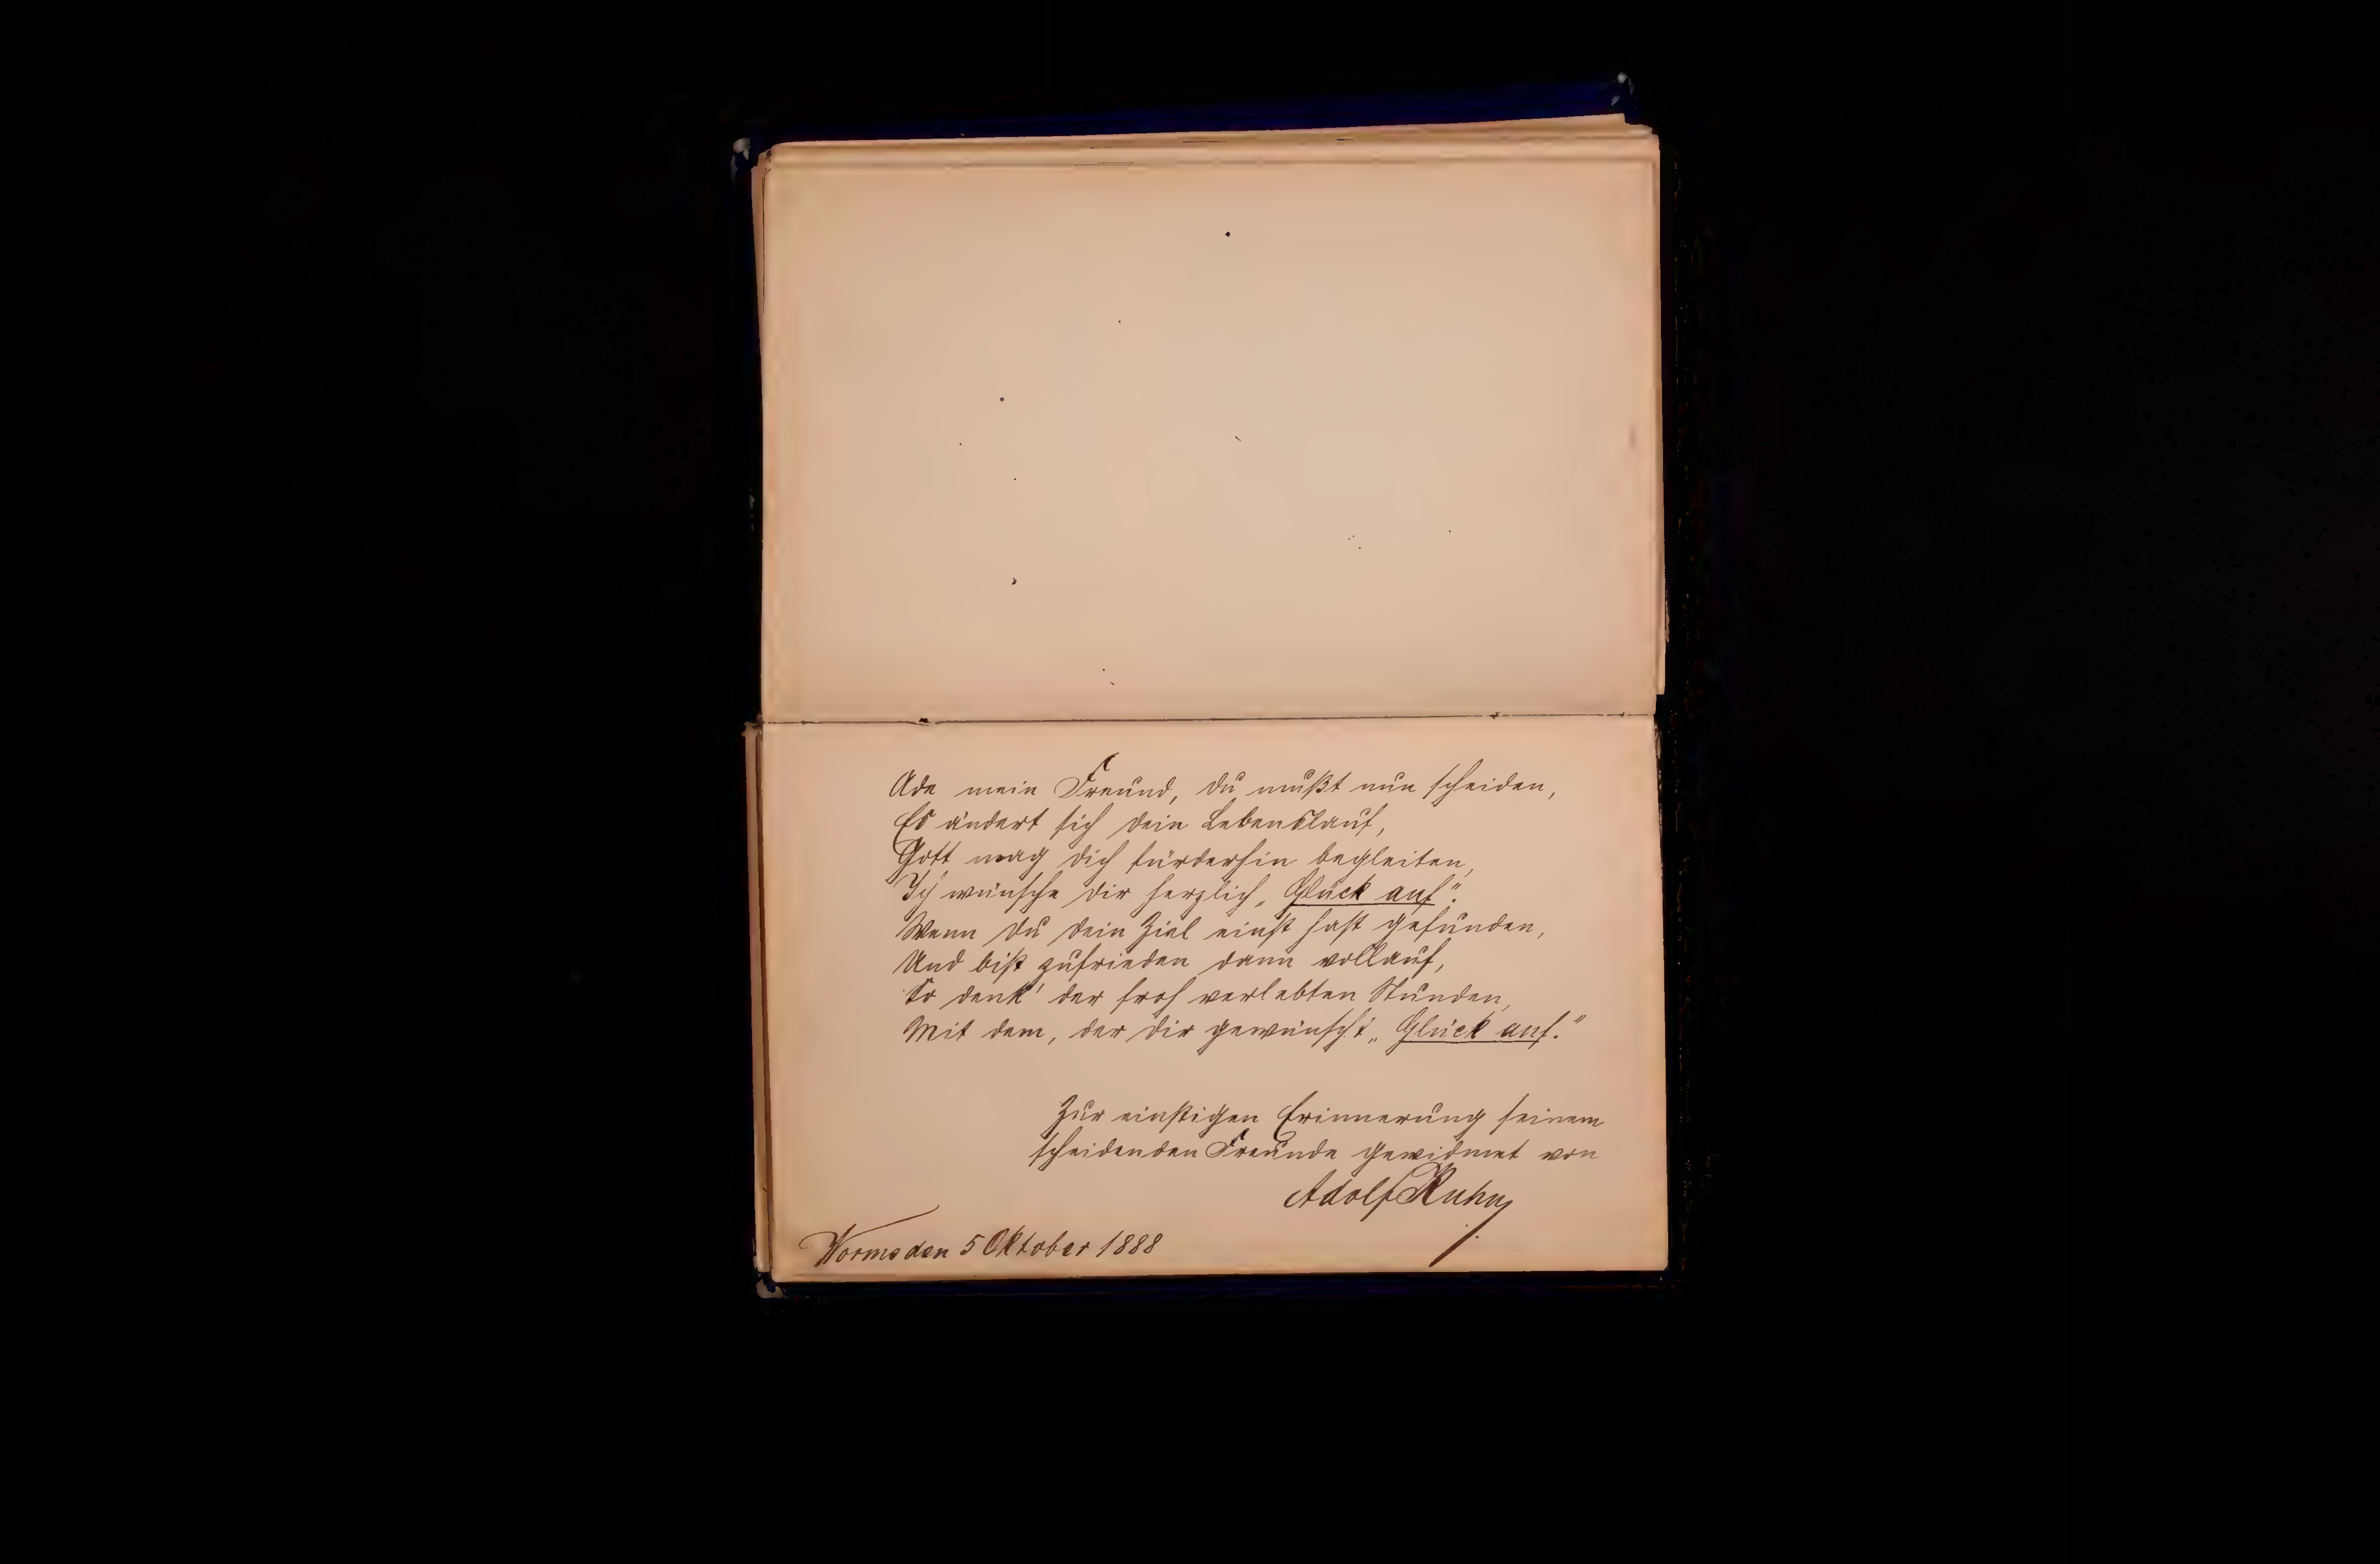 Ade mein Freund, du mußt nun scheiden,
Es ändert sich dein Lebenslauf,
Gott mag dich fürderhin begleiten,
Ich wünsche dir herzlich „Glück auf“.
Wenn du dein Ziel einst hast gefunden,
Und bist zufrieden dann vollauf,
So denk' der froh verlebten Stunden,
Mit dem, der dir gewünscht „Glück auf.“
Zur einstigen Erinnerung seinem
scheidenden Freunde gewidmet von
Adolf Kuhn
Worms den 5 Oktober 1888